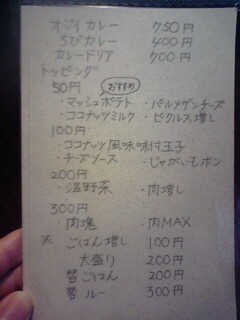 オジイカレー 750円
ちびカレー 400円
カレードリア 700円
トッピング
50円 おすすめ
・マッシュポテト ・パルメザンチーズ
・ココナッツミルク ・ピクルス増し
100円
・ココナッツ風味味付玉子
・チーズソース ・じゃがいもボン
200円
・温野菜 ・肉増し
300円
・肉塊 ・肉MAX
※ ごはん増し 100円
大盛り 200円
替ごはん 200円
替ルー 300円